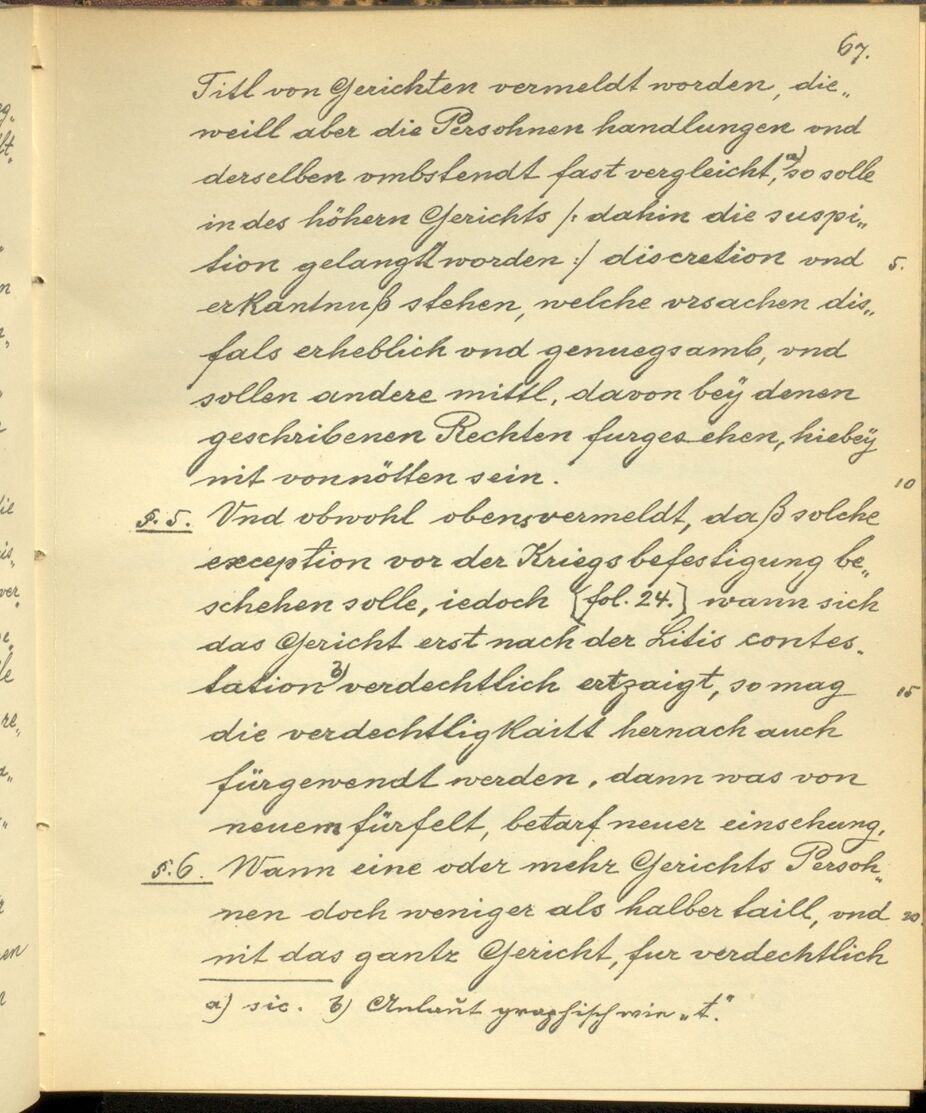 67.
Titl von Gerichten vermeldt worden, die„
weill aber die Persohnen handlungen vnd
derselben vmbstendt fast vergleicht, a) so solle
in des höhern Gerichts /: dahin die suspi„
tion gelangt worden :/ discretion vnd 5.
erkantnuß stehen, welche vrsachen dis„
fals erheblich vnd genuegsamb, vnd
sollen andere mittl, davon beÿ denen
geschribenen Rechten furgesehen, hiebeÿ
nit vonnötten sein. 10
§. 5. Vnd obwohl obens vermeldt, daß solche
exception vor der Kriegsbefestigung be„
schehen solle, iedoch [fol. 24.] wann sich
das Gericht erst nach der Litis contes„
tation b) verdechtlich ertzaigt, so mag 15
die verdechtligkaitt hernach auch
fürgewendt werden, dann was von
neuem fürfelt, betarf neuer einsehung.
§. 6. Wann eine oder mehr Gerichts Persoh„
nen doch weniger als halber taill, vnd 20.
nit das gantz Gericht, fur verdechtlich
a) sic. b) Anlaut graphisch wie „t“.